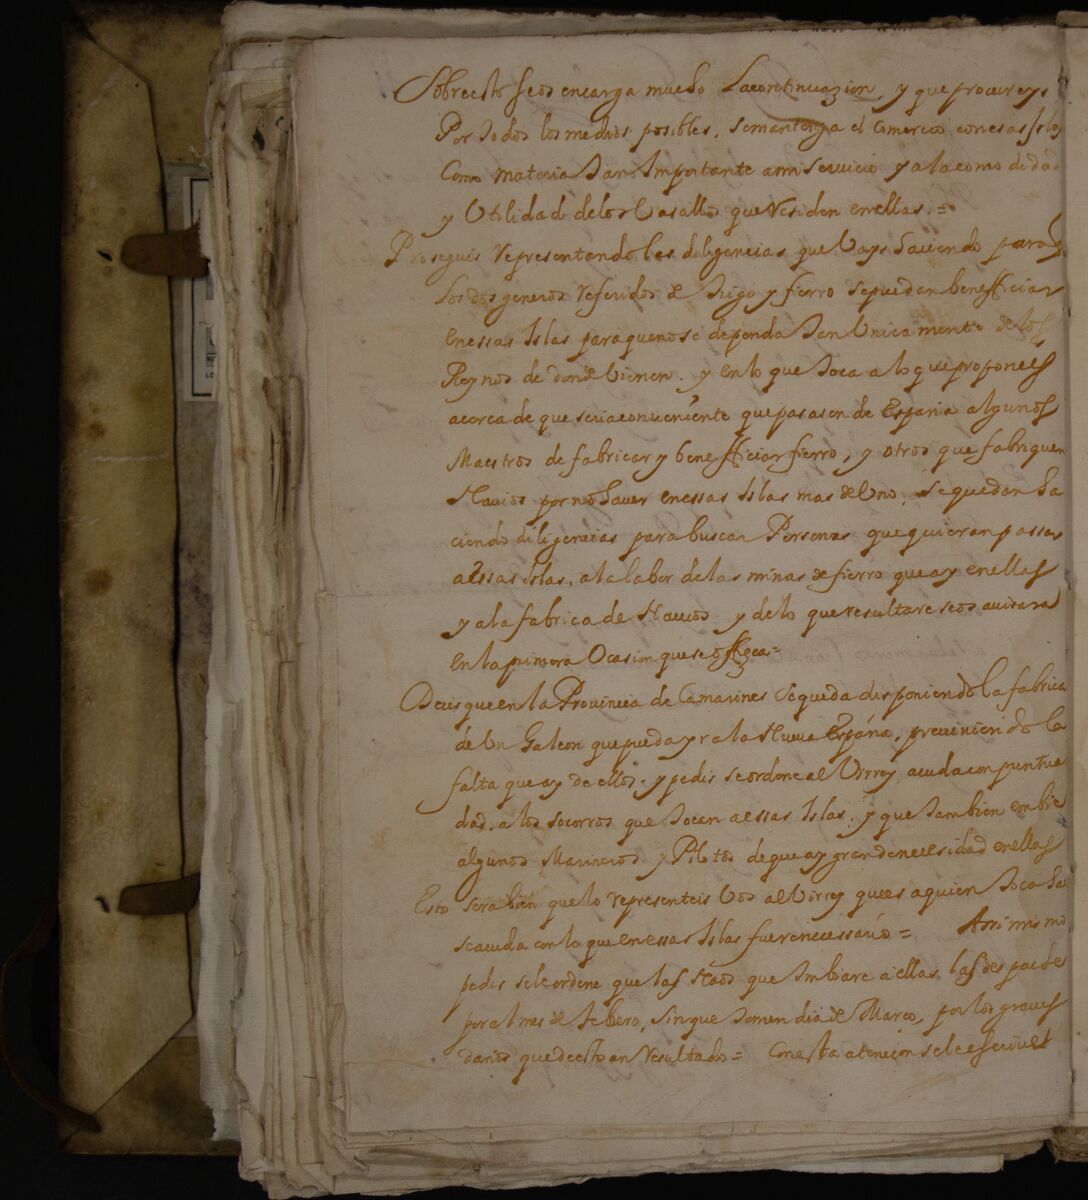 Sobreesto seos encarga mucho Lacontinuazion, y que procureys
Por todos los medios posibles, semantenga el Comercio conesas Islas
Como materia tan Importante ami servicio y ala comodidad
y Utilidad delos Vasallos que Residen enellas. =
Proseguis Representando las diligencias que Vays haciendo para q
Los dos generos Referidos de trigo y fierro sepuedan benefficiar
enessas Islas paraquenose dependa tan Unicamente de los
Reynos de donde bienen. y enlo que toca a lo que proponeis
acerca de que seria conveniente quepasasen de España algunos
Maestros de fabricar y benefficiar fierro, y otros que fabriquen
Navios por no haver enessas Islas mas de Uno. sequedan ha
ciendo diligencias para buscar Personas que quieran passar
a essas Islas, ala labor delas minas de fierro que ay enellas
y ala fabrica de Navios y delo que resultare seos avisara
en la primera Ocasion que se offrezca =
Decis que en la Provincia de Camarines sequeda disponiendo la fabrica
de Un Galeon que pueda yr a la Nueva España, previniendo la
falta que ay de ellos. y pedis se ordene al Virrey acuda con puntua
dad. a los socorros que tocan aessas Islas. y que tambien embie
algunos Marineros y Pilotos de que ay grande necesidad enellas
Esto sera bien que lo representeis Vos al Virrey pues aquien toca
se acuda con lo que enessas Islas fuere necessario = Assi mismo
pedis sele ordene que las Naos que Imbiare a ellas, las despache
por el mes de febrero, sin que tomen dia de Março, por los graves
daños que de esto an Resultado = Con esta atencion sele escrive